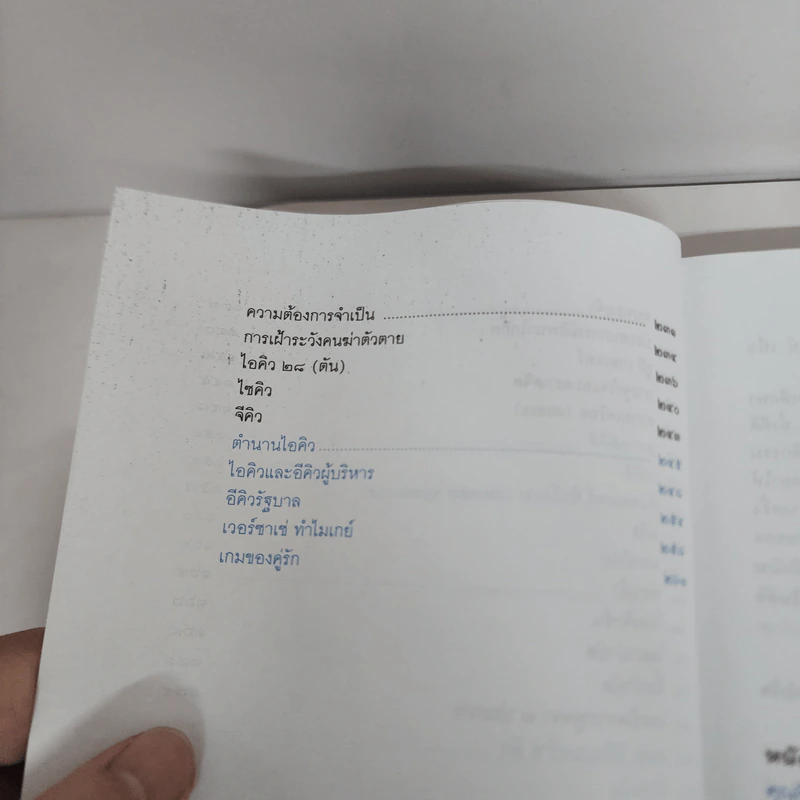 ความต้องการจำเป็น ๒๓๑
การเฝ้าระวังคนฆ่าตัวตาย ๒๓๔
ไอคิว ๒๘ (ตัน) ๒๓๖
ไซคิว ๒๔๐
จีคิว ๒๔๑
ตำนานไอคิว ๒๔๕
ไอคิวและอีคิวผู้บริหาร ๒๔๘
อีคิวรัฐบาล ๒๕๔
เวอร์ซาเช่ ทำไมเกย์ ๒๕๘
เกมของคู่รัก